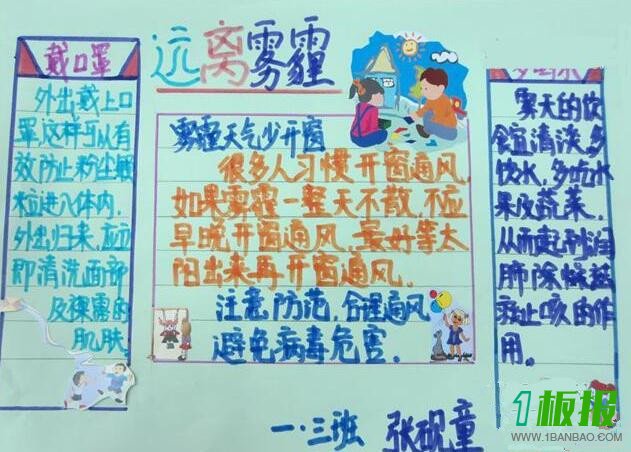 远离雾霾
戴口罩
外出戴上口
罩这样可以有
效防止粉尘颗
粒进入体内,
外出归来,应立
即清洗面部
及裸露的
肌肤.
雾霾天气少开窗
很多人习惯开窗通风,
如果雾霾一整天不散,不应
早晚开窗通风,最好等太
阳出来再开窗通风.
注意防范,合理通风
避免病毒危害.
雾天的饮
食宜清淡,多
饮水,多吃水
果及蔬菜,
从而起到润
肺除燥
止咳的作
用.
一·三班 张砚童
1板报
WWW.1BANBAO.COM